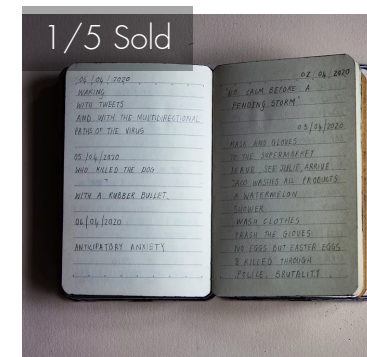 1/5 Sold
04/04/2020
WAKING
WITH TWEETS
AND WITH THE MULTIDIRECTIONAL
PATHS OF THE VIRUS
05/04/2020
WHO KILLED THE DOG
WITH A RUBBER BULLET.
06/04/2020
ANTICIPATORY ANXIETY
02/04/2020
"NO CALM BEFORE A
PENDING STORM"
03/04/2020
MASK AND GLOVES
TO THE SUPERMARKET
LEAVE, SEE JULIE, ARRIVE
WASHES ALL PRODUCTS
A WATERMELON
SHOWER
WASH CLOTHES
TRASH THE GLOVES
NO EGGS BUT EASTER EGGS
8 KILLED THROUGH
POLICE BRUTALITY